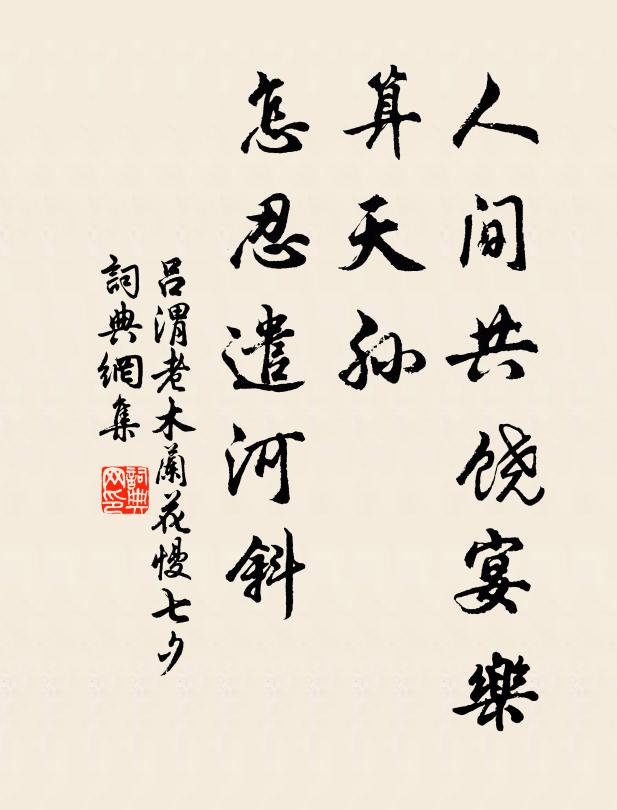 人间共饶宴樂
算天孙
怎忍遣河斜
吕渭老木蘭花慢七夕
詞典網集
詞典网印